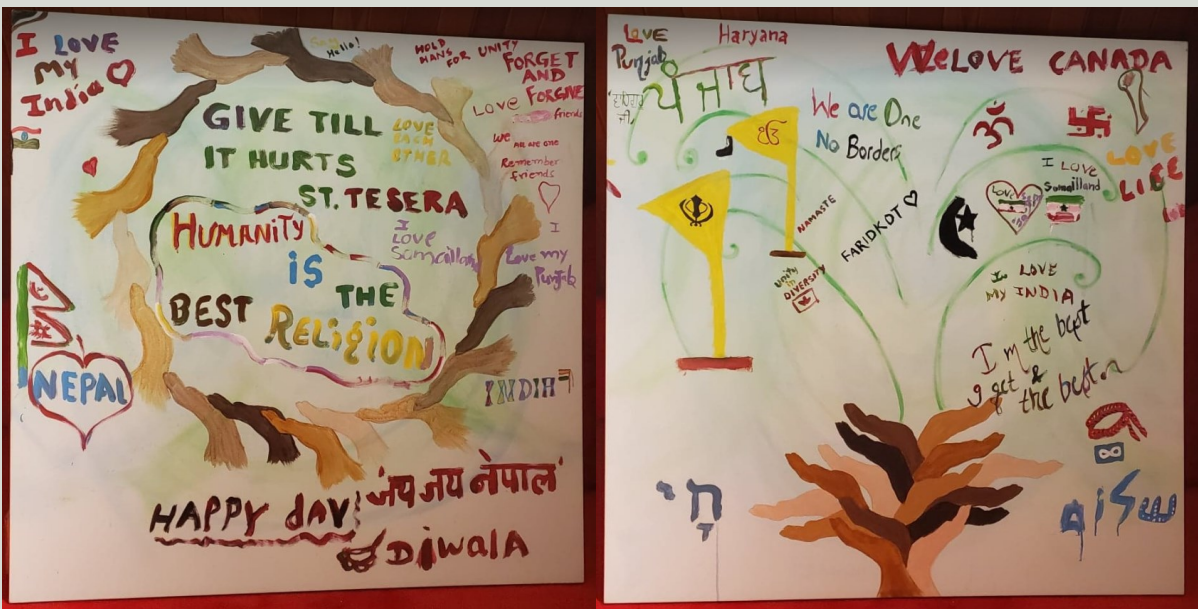 I LOVE
My
India
Hello!
HOLD
HANS
FOR UNITY
FORGET
AND
FORGIVE
LOVE
friends
We
ARE ARE ONE
Remember
friends
GIVE TILL
IT HURTS
ST. TESERA
LOVE
EACH
OTHER
HUMANITY
is
THE
BEST RELIGION
I
LOVE
Somailland
I
Love my
Punjab
NEPAL
INDIA
HAPPY dAV
'जय जय नेपाल'
DiwalA
LOVE
Punjab
Haryana
ਪੰਜਾਬ
WeLOVE CANADA
We are One
No Borders
ੴ
ॐ
卐
LOVE
LIFE
I LOVE
Somailland
LOVE
NAMASTE
FARIDKOT
unity
in
DIVERSITY
I LOVE
MY INDIA
I m the best
I get
the best.
חי
שלום